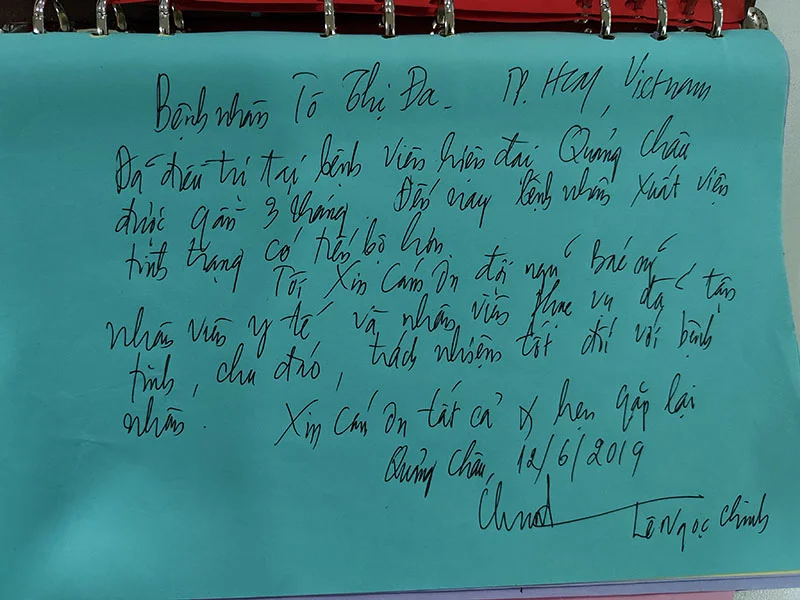 Bệnh nhân Tô Thị Đa - TP. HCM, Vietnam
Đã điều trị tại bệnh viện hiện đại Quảng Châu
được gần 3 tháng. Đến nay bệnh nhân xuất viện
tình trạng có tiến bộ hơn.
Tôi xin cám ơn đội ngũ Bác sĩ
nhân viên y tế và nhân viên phục vụ đã tận
tình, chu đáo, trách nhiệm tốt đối với bệnh
nhân. Xin cám ơn tất cả & hẹn gặp lại
Quảng Châu, 12/6/2019
Lê Ngọc Chinh